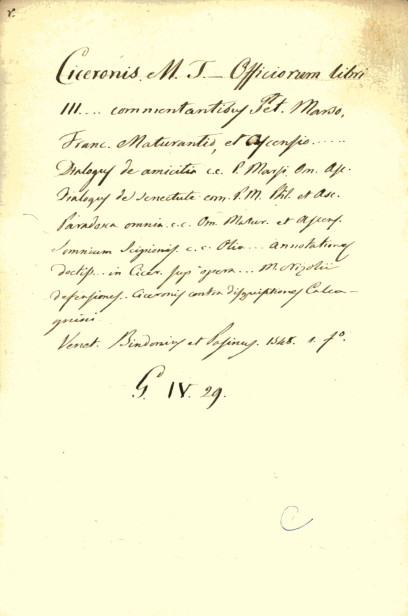 r.
Ciceronis. M. T_ Officiorum libri
III.... commentantibus Pet. Marso,
Franc. Maturantio, et Ascensio......
Dialogus de amicitia c.c. P. Marsi, Om. Asc.
Dialogus de senectute com. P. M. Phil. et Asc.
Paradoxa omnia. c.c. Om. Matur. et Ascens.
Somnium Scipionis. c.c. Otio.... annotationes
doctiss... in Cicer. sup. opera.... M. Nizolii
defensiones.. Ciceronis contra disquisitiones Calca-
gnini
Venet. Bindonius et Pasinus. 1548. 1. fº.
G. IV. 29.
C